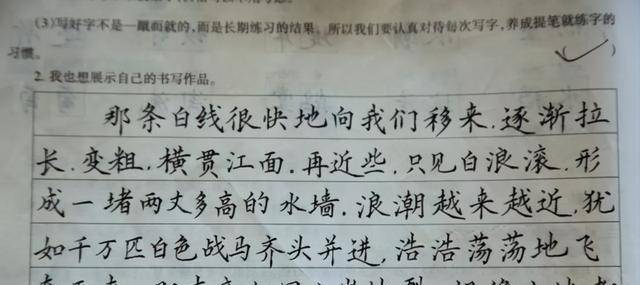 (3)写好字不是一蹴而就的,而是长期练习的结果。所以我们要认真对待每次写字,养成提笔就练字的
习惯。 ( ✓ )
2. 我也想展示自己的书写作品。
那条白线很快地向我们移来.逐渐拉
长.变粗.横贯江面.再近些.只见白浪滚.形
成一堵两丈多高的水墙.浪潮越来越近,犹
如千万匹白色战马齐头并进,浩浩荡荡地飞